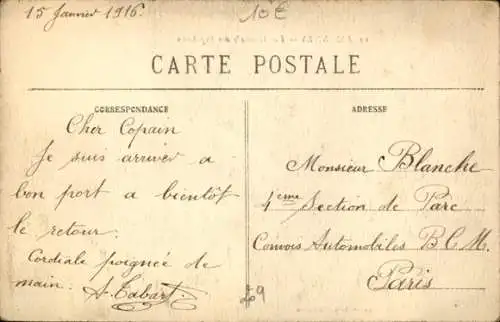 15 Janvier 1916.
10€
CARTE POSTALE
CORRESPONDANCE
Cher Copain
Je suis arriver a
bon port a bientôt
le retour.
Cordiale poignée de
main. A. Tabart
ADRESSE
Monsieur Blanche
4eme Section de Parc
Convois Automobiles B.C.M.
Paris